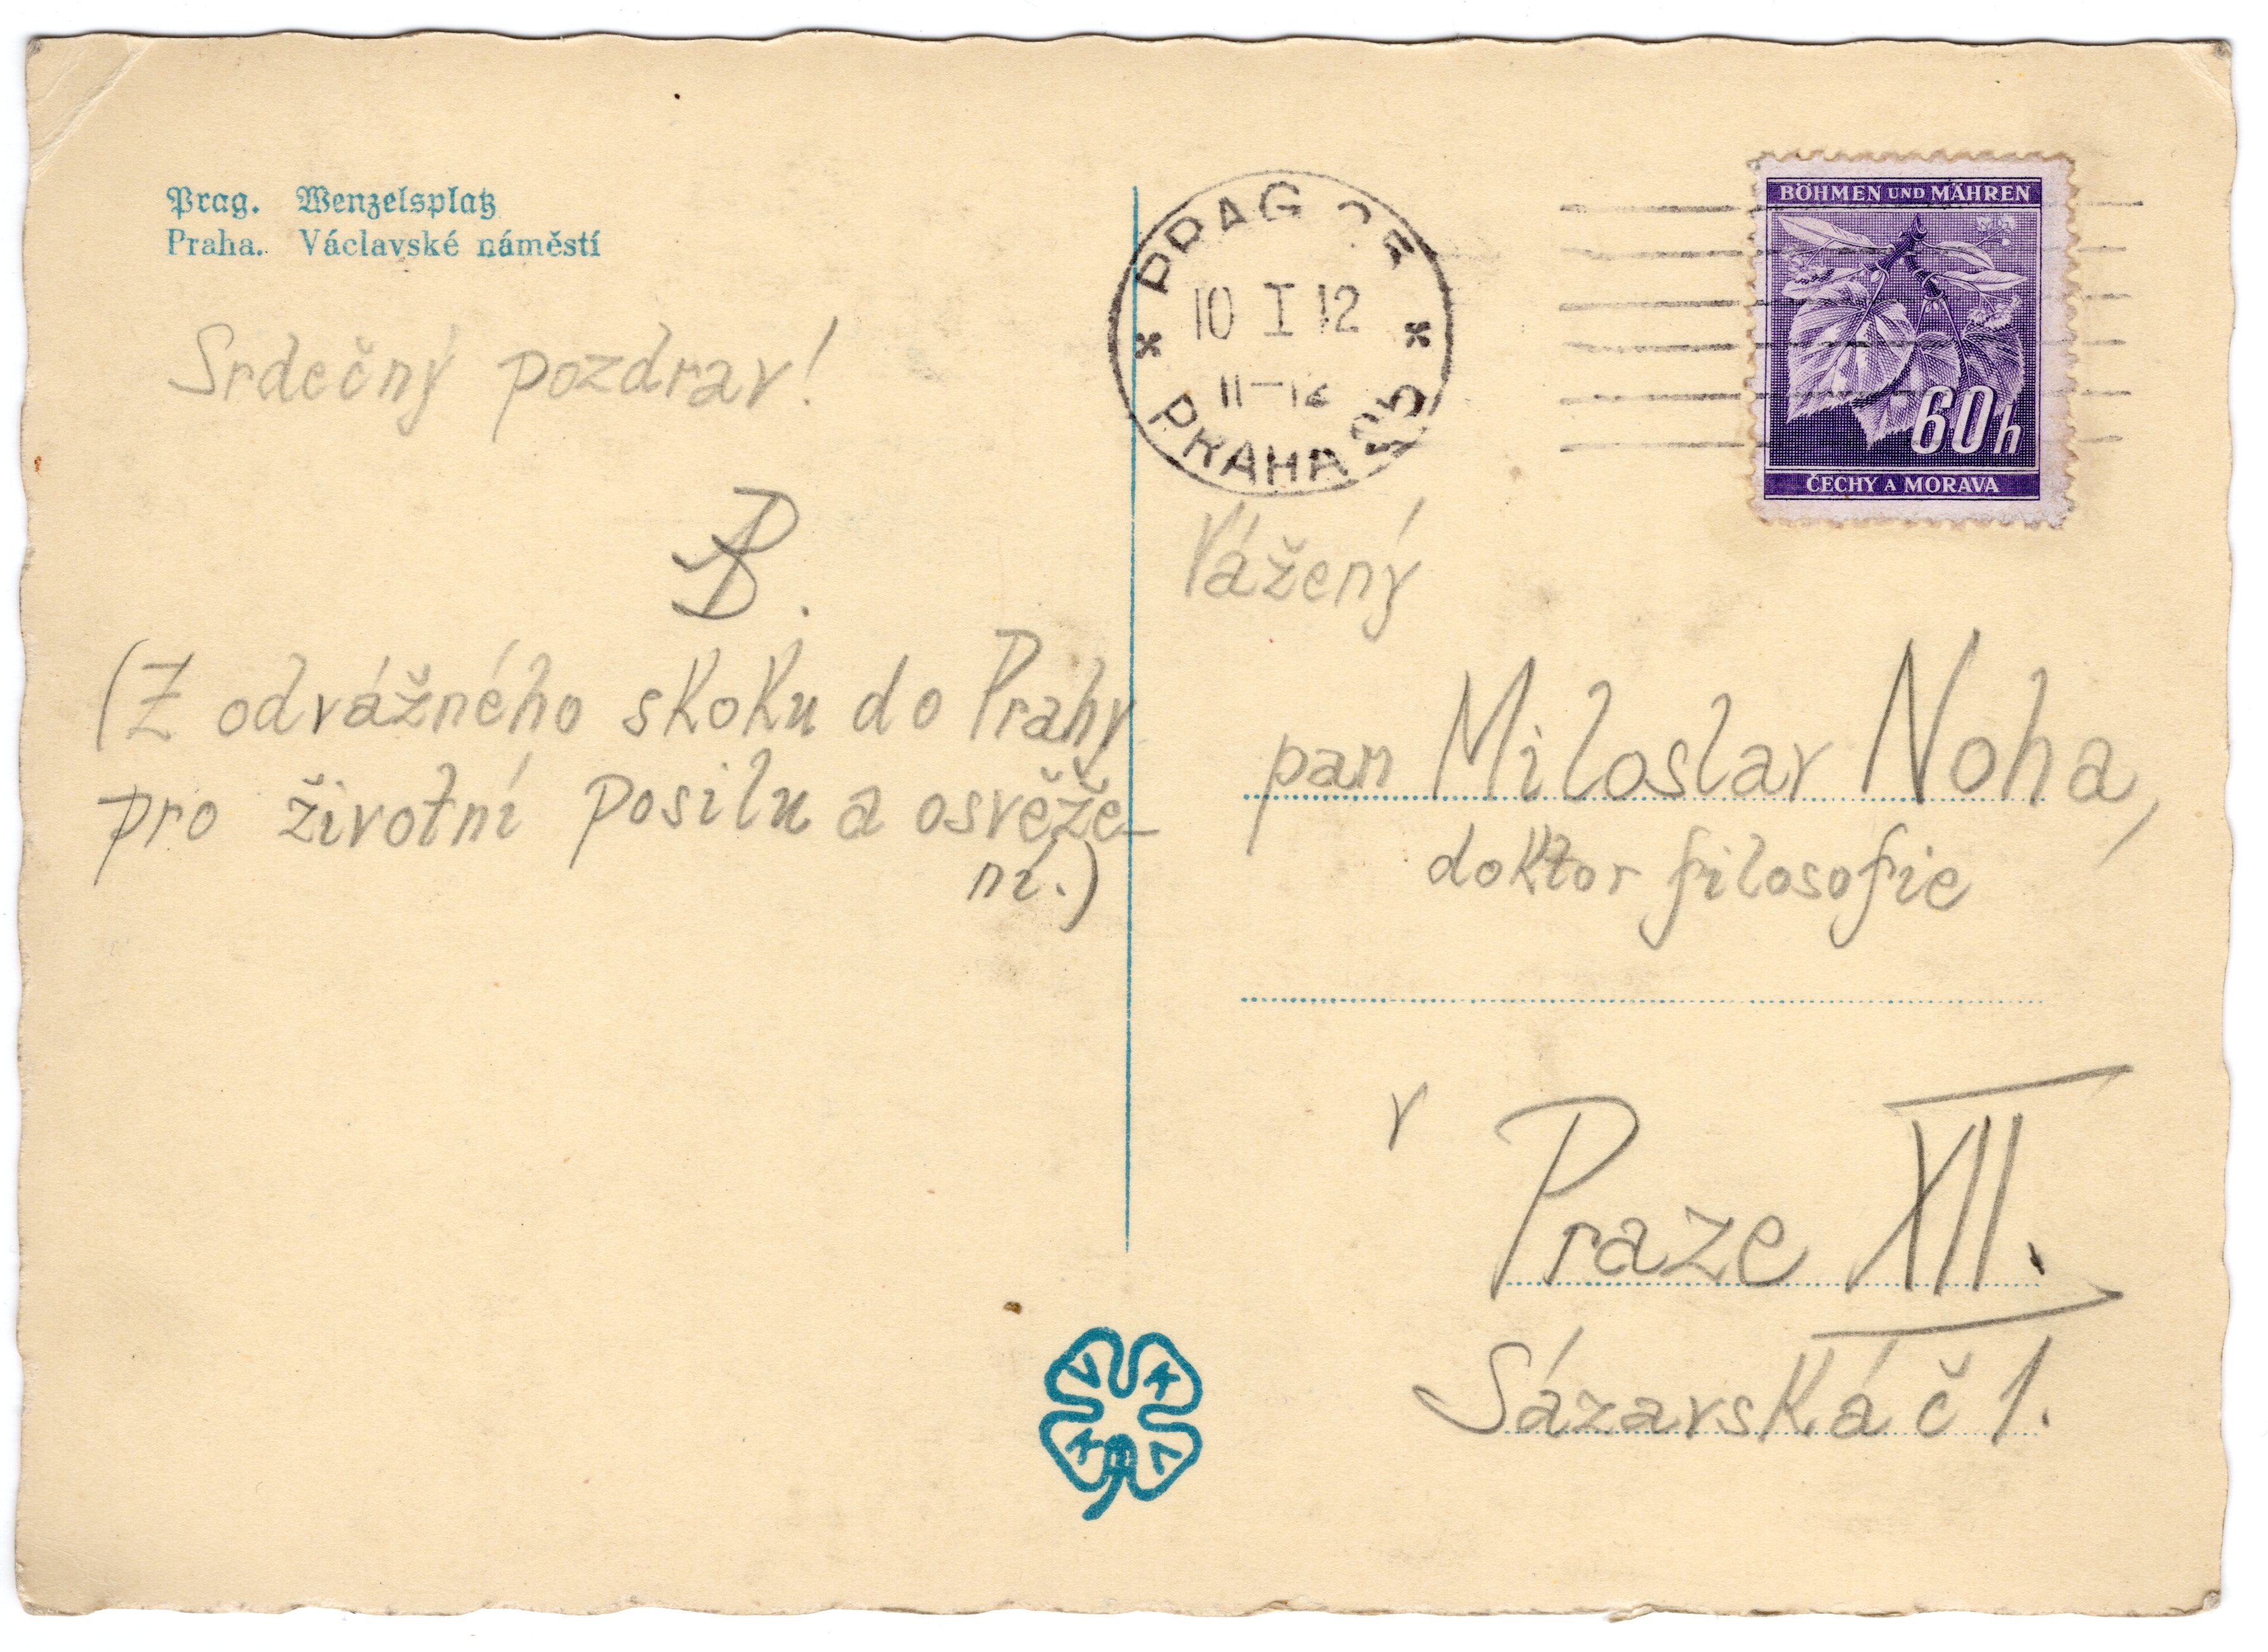 Prag. Wenzelsplatz
Praha. Václavské náměstí
Srdečný pozdrav!
(Z odvážného skoku do Prahy
pro životní posilu a osvěže-
ní.)
PRAG 25
10 I 12
11-12
PRAHA 25
BÖHMEN UND MÄHREN
60h
ČECHY A MORAVA
Vážený
pan Miloslav Noha,
doktor filosofie
v
Praze XII.
Sázavská č 1.